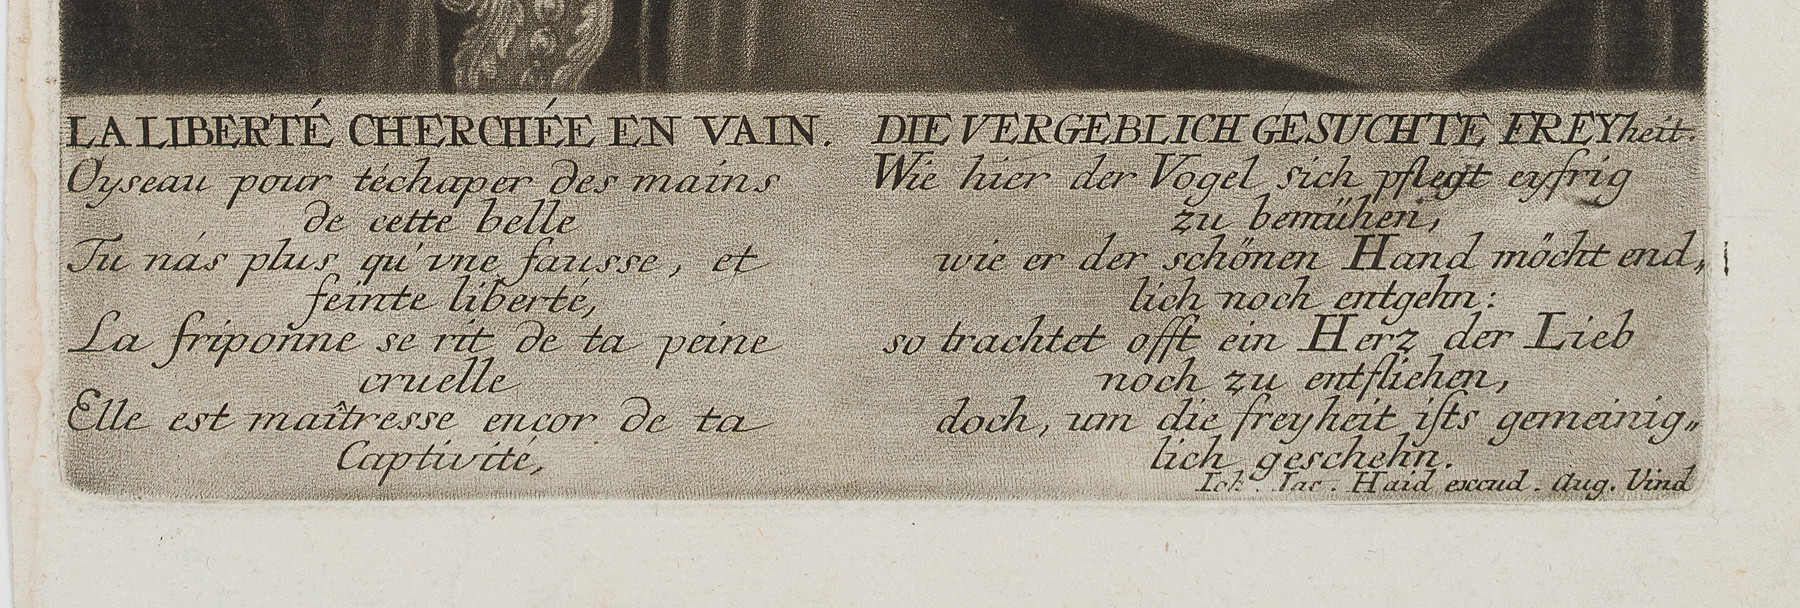 LA LIBERTÉ CHERCHÉE EN VAIN.
Oyseau pour téchaper des mains
de cette belle
Tu nás plus qu'vne fausse, et
feinte liberté,
La friponne se rit de ta peine
cruelle
Elle est maîtresse encor de ta
Captivité,
DIE VERGEBLICH GESUCHTE FREYheit.
Wie hier der Vogel sich pflegt eyfrig
zu bemühen,
wie er der schönen Hand möcht end„
lich noch entgehn:
so trachtet offt ein Herz der Lieb
noch zu entfliehen,
doch, um die freyheit ists gemeinig„
lich geschehn.
Ioh. Iac. Haid excud. Aug. Vind